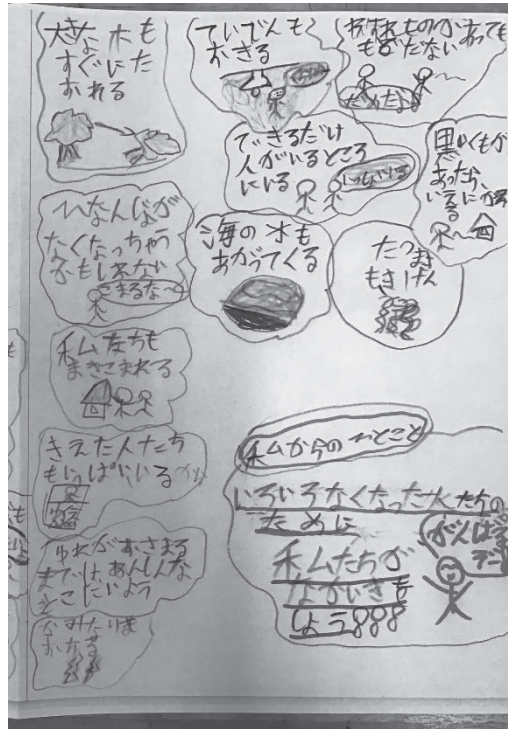 大きな木も
すぐにた
おれる
ていでんも
おきる
わすれものがあっても
もどらない
だめだよ
できるだけ
人がいるところ
にいる
黒いくもが
あったら、
いえに
ひなんじょが
なくなっちゃう
かもしれない
こまるな〜
海の水も
あがってくる
たつまき
もきけん
私たちも
まきこまれる
きえた人たち
もいっぱいいる
ゆれがおさまる
まではあんしんな
ところにいよう
かみなりも
私からのひとこと
いろいろなくなった人たちの
ために
私たちが
ながいきも
しよう!!!
がんばる
ぞー